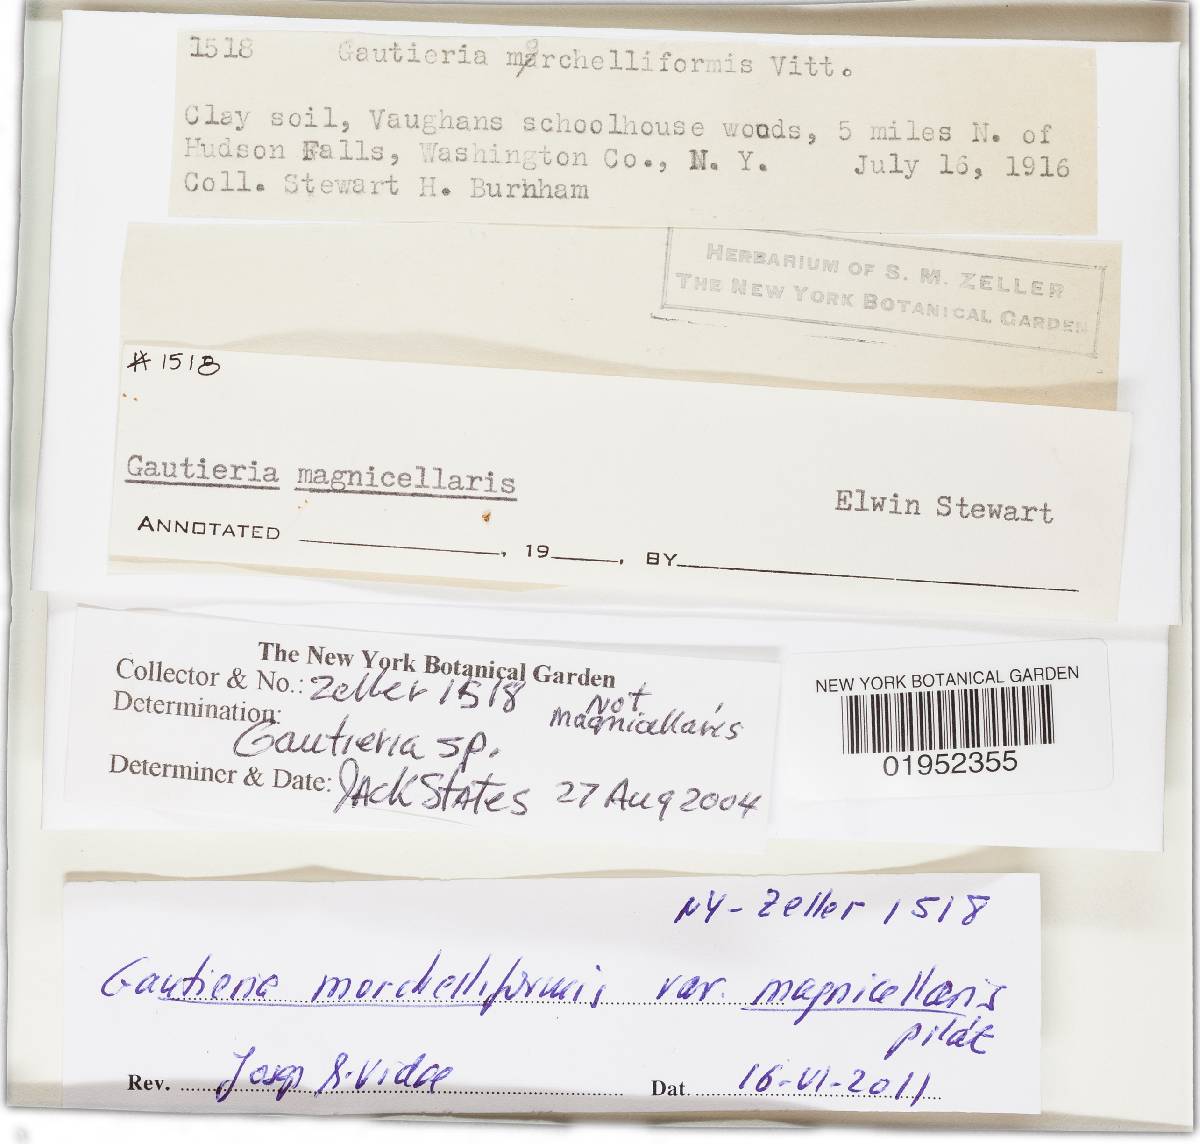 1518 Gautieria morchelliformis Vitt.
Clay soil, Vaughans schoolhouse woods, 5 miles N. of
Hudson Falls, Washington Co., N. Y. July 16, 1916
Coll. Stewart H. Burnham
HERBARIUM OF S. M. ZELLER
THE NEW YORK BOTANICAL GARDEN
# 1518
Gautieria magnicellaris
Elwin Stewart
ANNOTATED , 19 , BY
The New York Botanical Garden
Collector & No.: Zeller 1518
not magnicellaris
Determination:
Gautieria sp.
Determiner & Date: Jack States 27 Aug 2004
NEW YORK BOTANICAL GARDEN
01952355
NY- Zeller 1518
Gautieria morchelliformis var. magnicellaris
pilát
Rev. Josep Vidal
Dat. 16-VI-2011